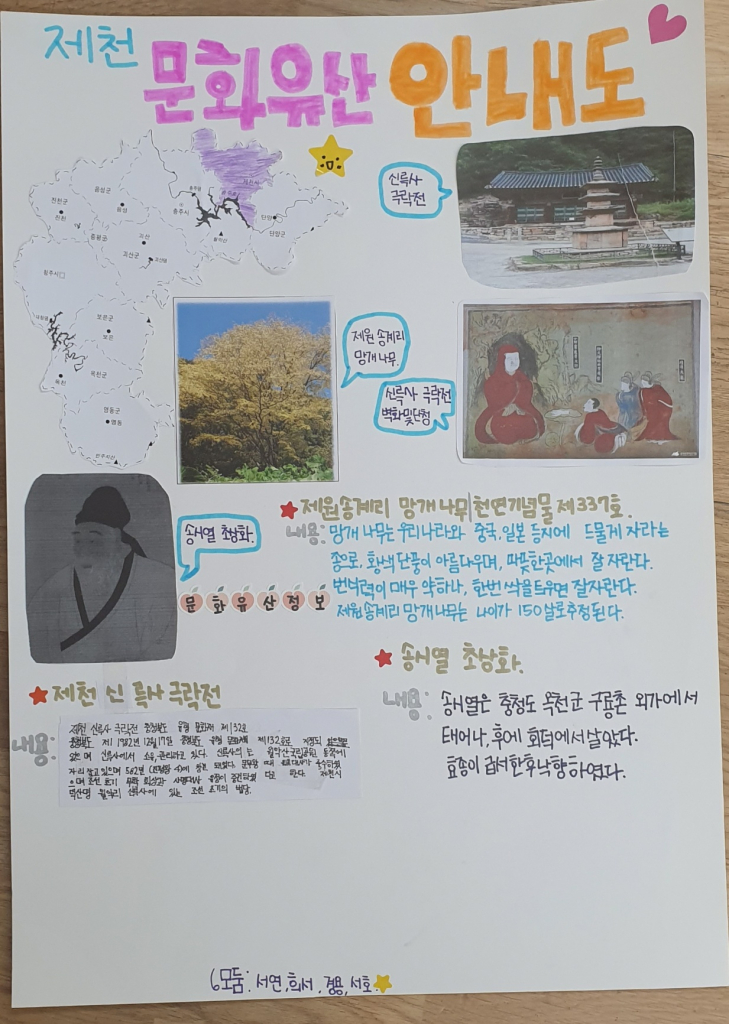 제천 문화유산 안내도
진천군
진천
음성군
음성
증평군
괴산
괴산군
충주시
제천시
단양
단양군
청주시
보은군
보은
옥천
옥천군
영동군
영동
신륵사
극락전
제원 송계리
망개 나무
신륵사 극락전
벽화및단청
송시열 초상화.
문화유산정보
제원송계리 망개 나무 천연기념물 제337호.
내용: 망개 나무는 우리나라와 중국, 일본 등지에 드물게 자라는
종으로, 황색 단풍이 아름다우며, 따뜻한곳에서 잘 자란다.
번식력이 매우 약하나, 한번 싹을 틔우면 잘자란다.
제원 송계리 망개 나무는 나이가 150살로추정된다.
제천 신륵사 극락전
내용:
제천 신륵사 극락전 충청북도 유형 문화재 제132호
제132호로 지정되
있으며 신륵사에서 소유, 관리하고 있다. 신륵사의 는 월악산국립공원 동쪽에
자리 잡고 있으며 582년
으며 조선 초기 무학 사명대사 제천시
덕산면 월악리 신륵사에 있는 조선 초기의 법당.
송시열 초상화.
내용: 송시열은 충청도 옥천군 구룡촌 외가에서
태어나, 후에 회덕에서 살았다.
효종이 급서한후 낙향하였다.
6모둠: 서연, 희서, 경용, 서호